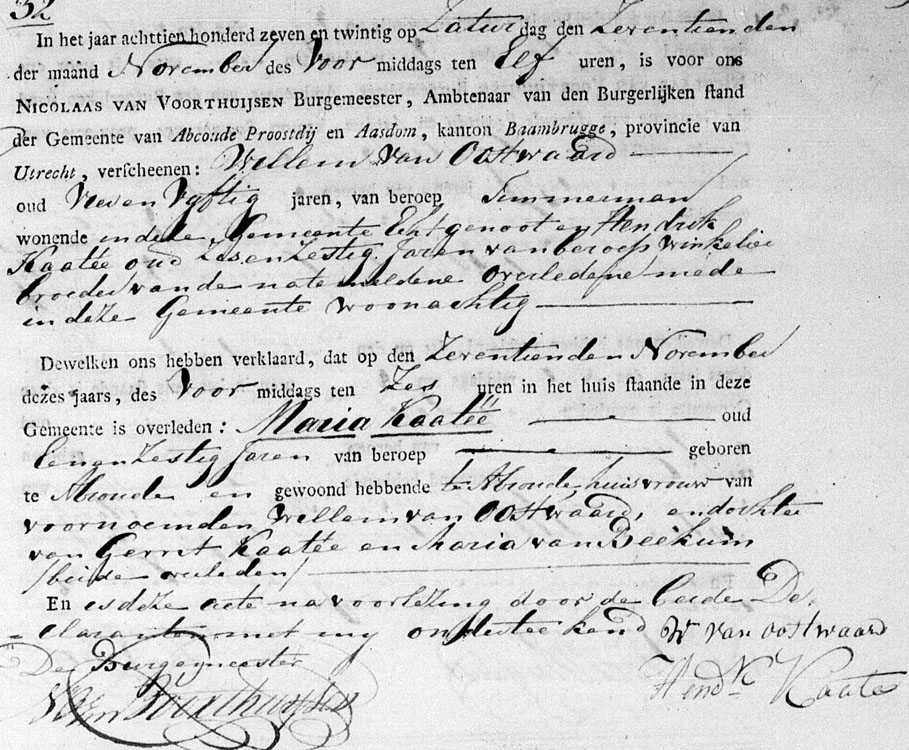 32
In het jaar achttien honderd zeven en twintig op Zatur dag den Zeventienden
der maand November des Voor middags ten Elf uren, is voor ons
NICOLAAS VAN VOORTHUIJSEN Burgemeester, Ambtenaar van den Burgerlijken stand
der Gemeente van Abcoude Proostdij en Aasdom, kanton Baambrugge, provincie van
Utrecht, verscheenen: Willem van Oostwaard
oud Vier en Vyftig jaren, van beroep Timmerman
wonende in deze Gemeente Echtgenoot en Hendrik
Kaatée oud Zes en Zestig Jaren van beroep Winkelier
broeder van de nate meldene Overledene mede
in deze Gemeente woonachtig
Dewelken ons hebben verklaard, dat op den Zeventienden November
dezes jaars, des Voor middags ten Zes uren in het huis staande in deze
Gemeente is overleden: Maria Kaatée oud
Eenen Zestig Jaren van beroep geboren
te Abcoude en gewoond hebbende te Abcoude huisvrouw van
voornoemden Willem van Oostwaard, en dochter
van Gerrit Kaatée en Maria van Beekum
/beide overleden/
En is deze acte na voorlezing door de beide De-
claranten met my onderteekend W van Oostwaard
De Burgemeester Hendk Kaatee
NvVoorthuysen